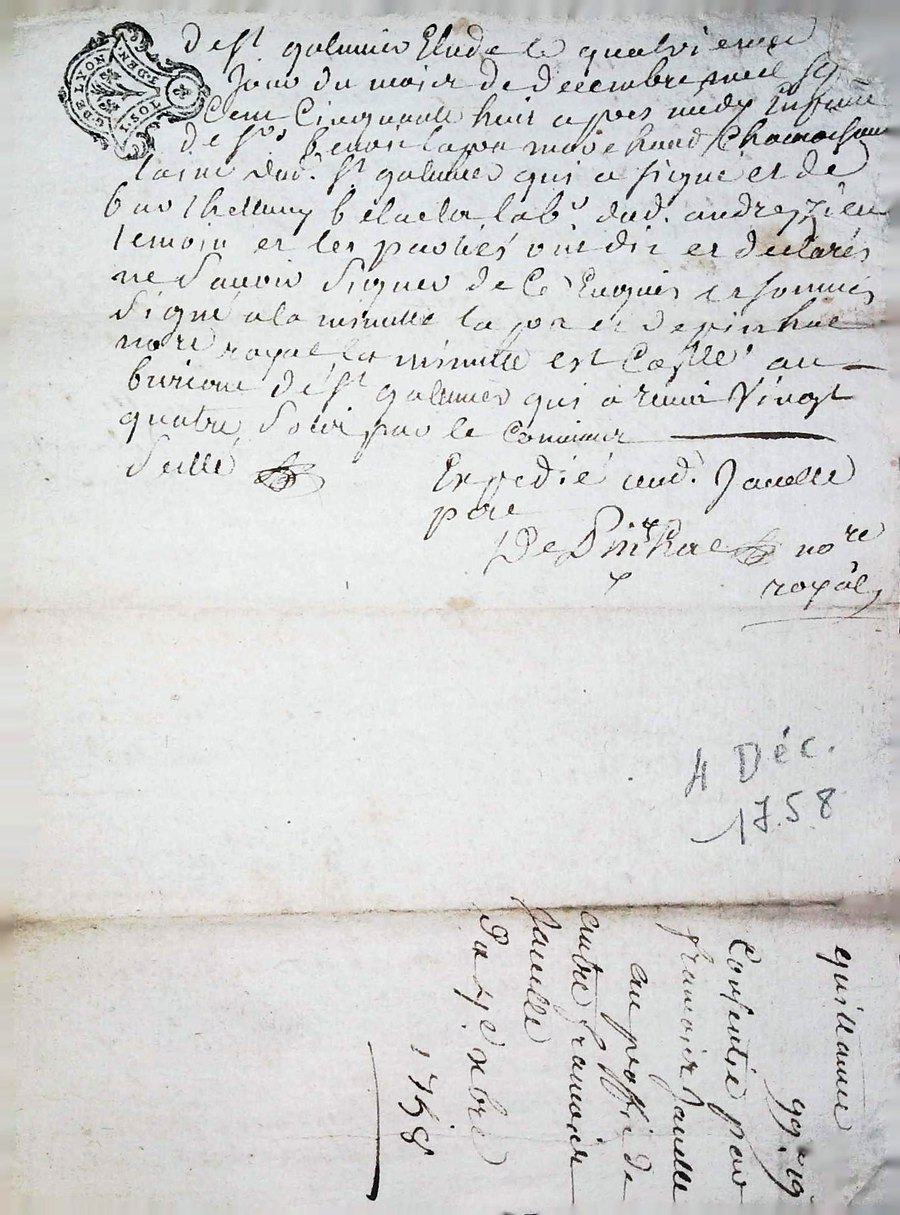 G. DE LYON
GEN.
1. SOL
de st galmier Etude le quatrieme
Jour du mois de decembre mil sept
Cent Cinquante huit apres midy
de sr. benoit lapra marchand
laine dud. st galmier qui a signé et de
barthellemy lab.r dud. andrezieu
temoin et les parties ont dit et declarés
ne Savoir signer de Ce Enquis et sommés
Signé a la minutte lapra et depinhac
nore royal la minutte est Collé au
bureau de st galmier qui a reçu Vingt
quatre Sous par le Commis
Scellé
Expedié aud. Janelle
pere
DePinhac nore
royal
4 Déc.
1758
quittance
99.19
Consentie par
francois Janelle
au proffit de
andre francois
Janelle
Du 4e xbre
1758